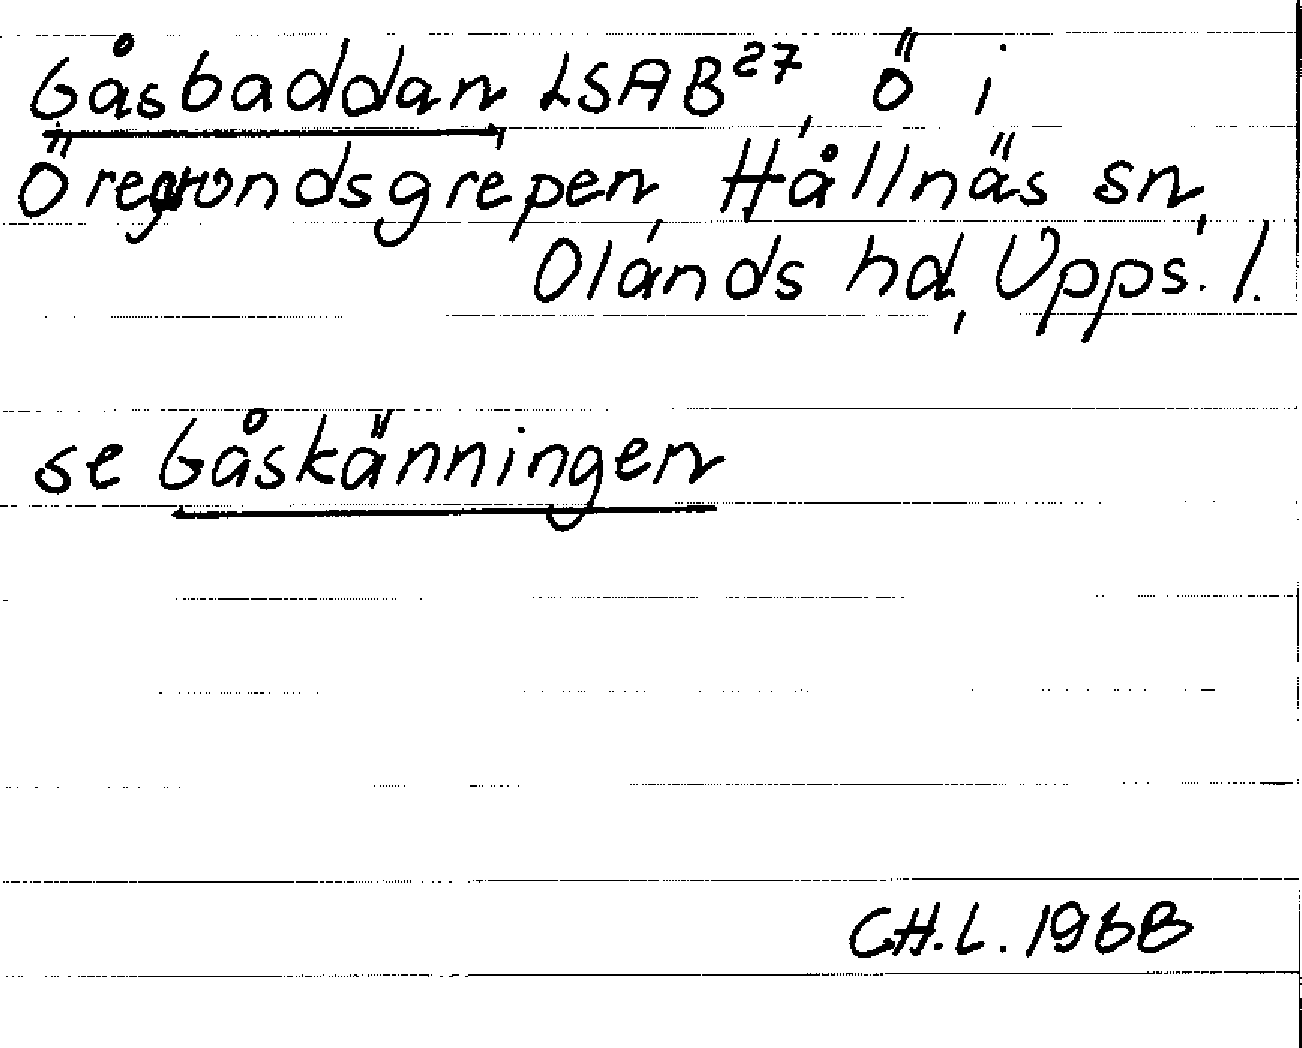 Gåsbaddan, LSAB²⁷, ö i
Öregrondsgrepen, Hållnäs sn,
Olands hd, Upps. l.
se Gåskänningen
CH.L. 1968